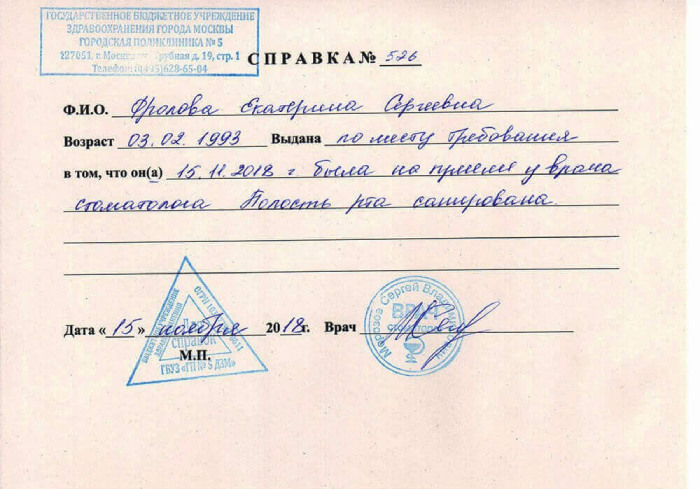 ГОСУДАРСТВЕННОЕ БЮДЖЕТНОЕ УЧРЕЖДЕНИЕ
ЗДРАВООХРАНЕНИЯ ГОРОДА МОСКВЫ
ГОРОДСКАЯ ПОЛИКЛИНИКА № 5
127051, г. Москва, Трубная д. 19, стр. 1
Телефон: (495)628-65-04
СПРАВКА № 526
Ф.И.О. Фролова Екатерина Сергеевна
Возраст 03.02.1993 Выдана по месту требования
в том, что он(а) 15.11.2018 г была на приеме у врача
стоматолога Полость рта санирована.
Дата « 15 » ноября 2018г. Врач
М.П.
Для
справок
ГБУЗ «ГП № 5 ДЗМ»
Морозов Сергей
ВРАЧ